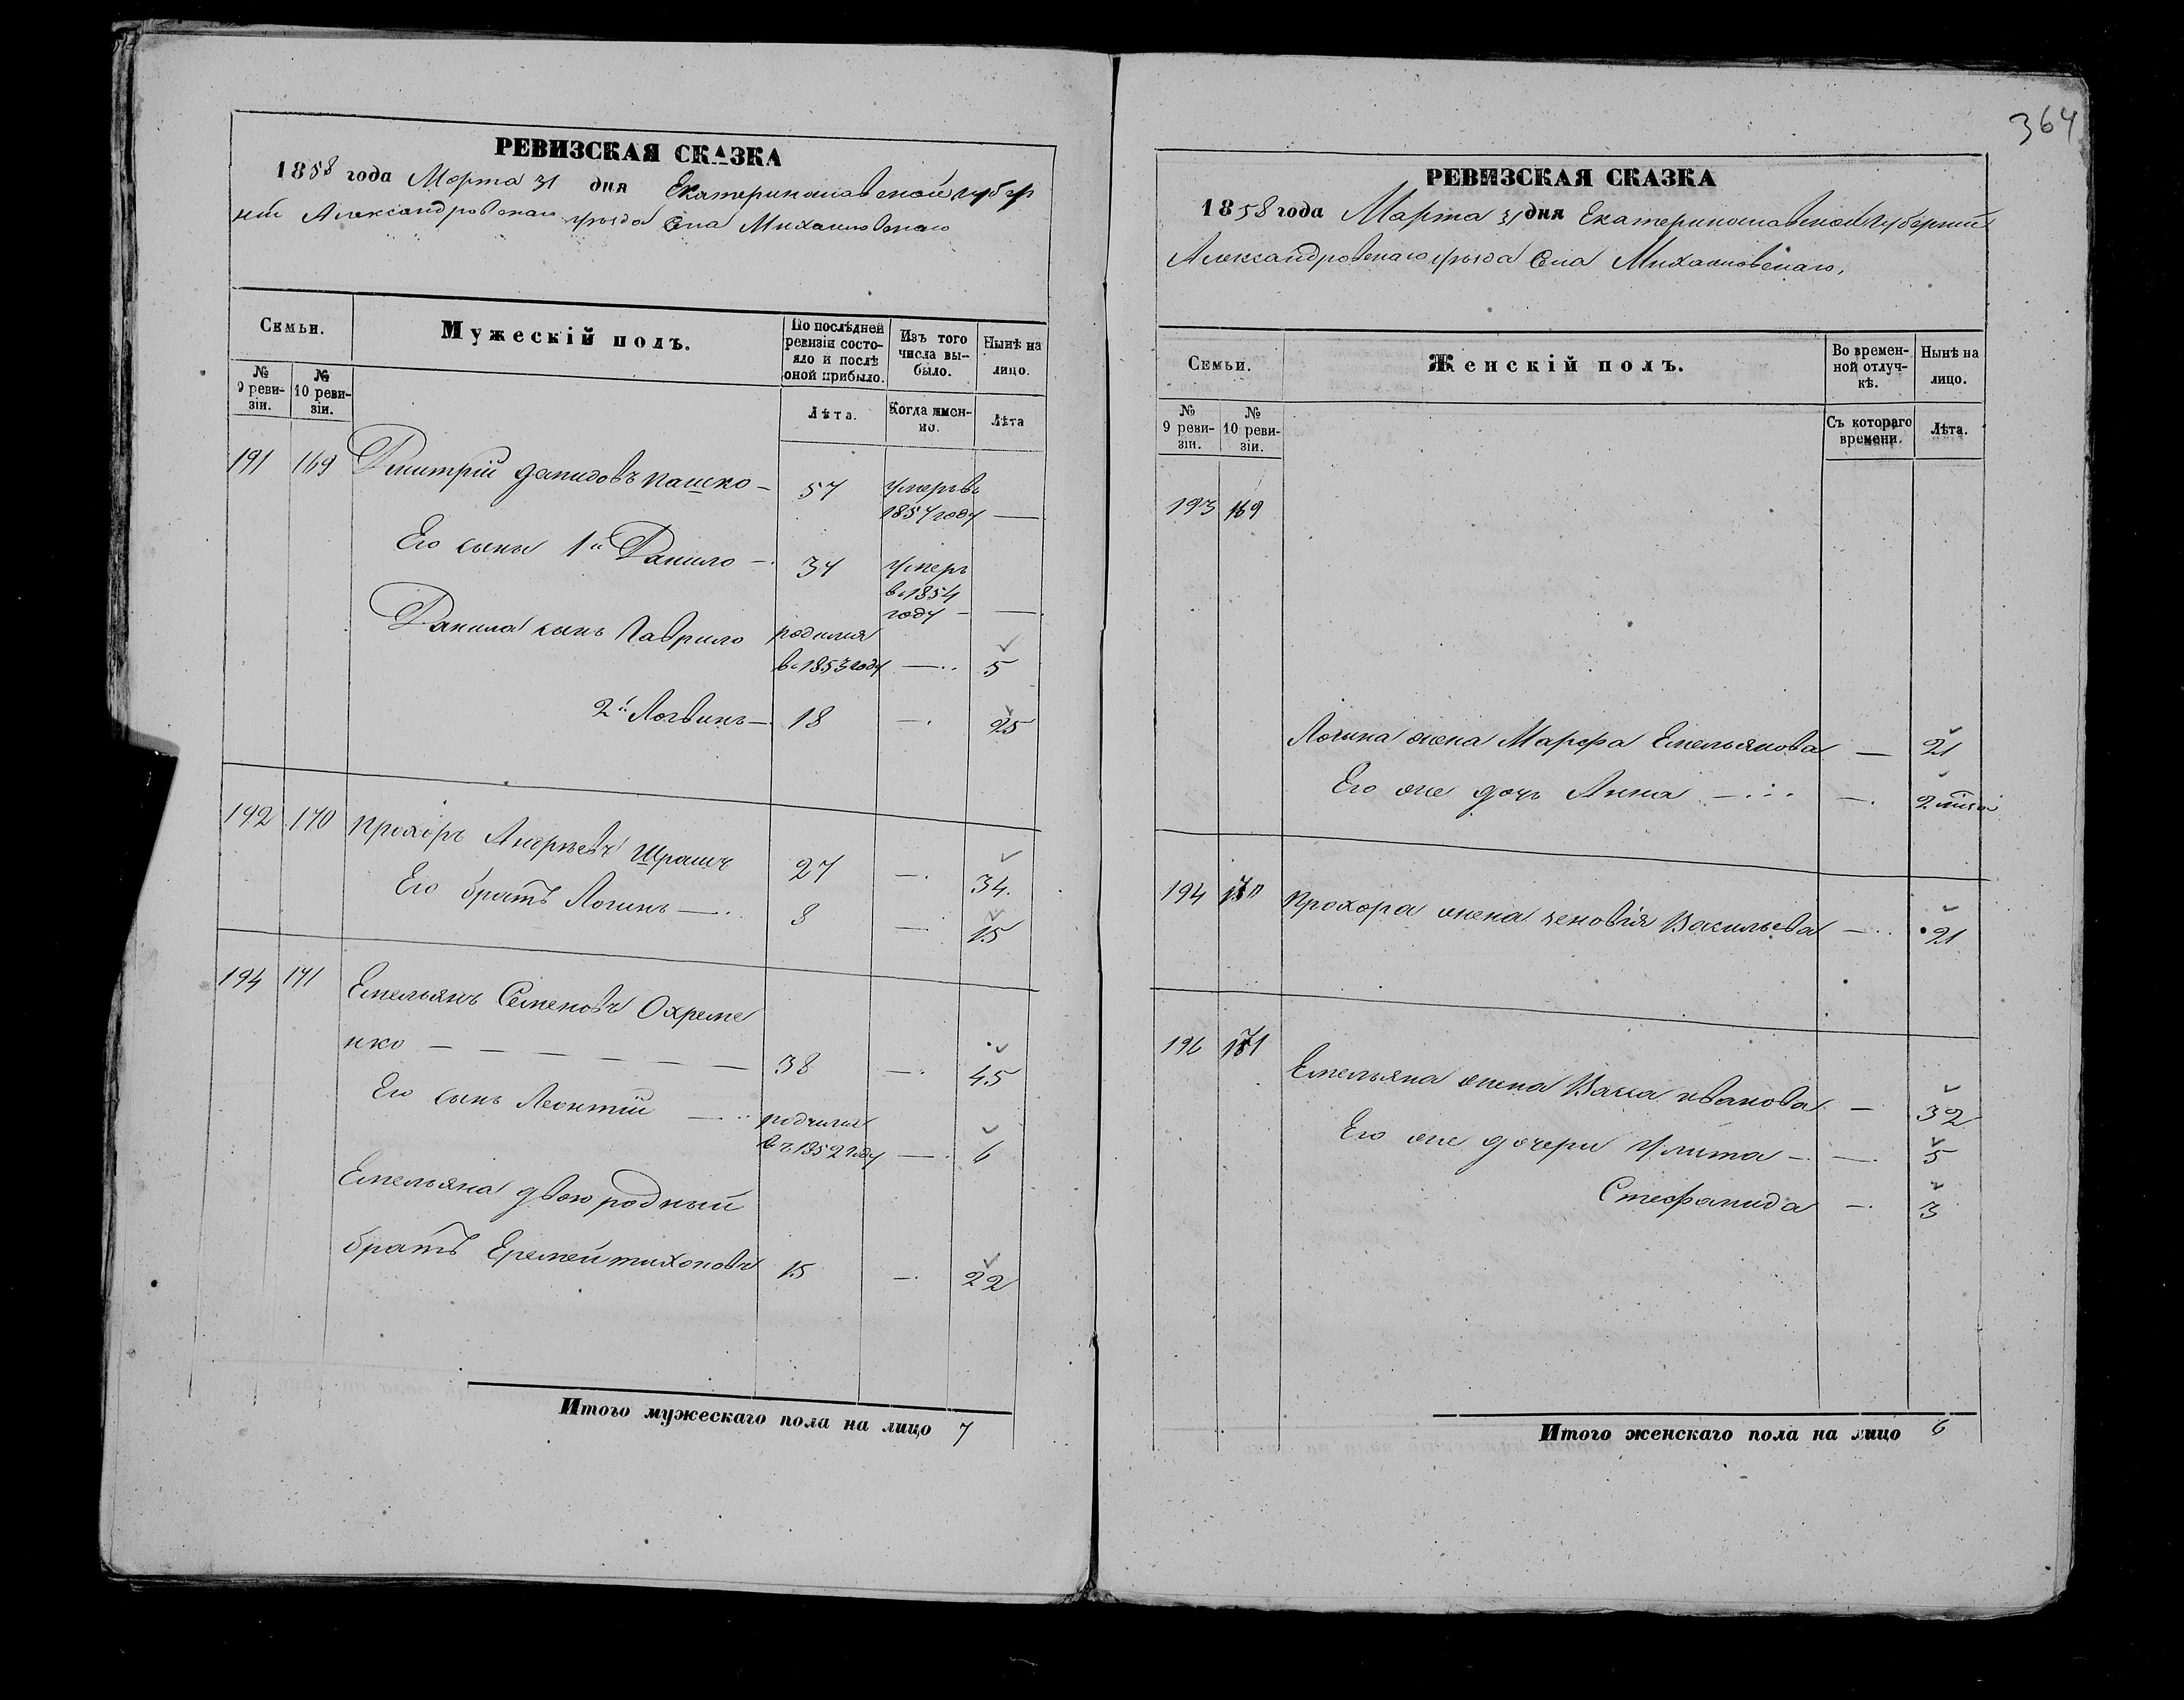 РЕВИЗСКАЯ СКАЗКА
1858 года Марта 31 дня Екатеринославской губер
нии Александровскаго уезда Села Михайловскаго
Семьи.
№ 9 реви-зіи.
№ 10 реви-зіи.
Мужескій полъ.
По послѣдней ревизіи состо-яло и послѣ оной прибыло.
Лѣта.
Изъ того числа вы-было.
Когда имен-но.
Нынѣ на лицо.
Лѣта
191 169 Дмитрій Данидовъ Пашко — 57 умеръ въ
1857 году —
Его сыны 1й Данило — 34 умеръ
въ 1854
году — —
Данила сынъ Гаврило родился
въ 1853 году — 5
2й Логвинъ — 18 — 25
192 170 Прохоръ Андреевъ 27 — 34.
Его братъ Логинъ — 8 — 15
194 171 Емельянъ Семеновъ Охреме
нко — — — — — — 38 — 45
Его сынъ Леонтій — родился
въ 1852 году — 6
Емельяна двоюродный
братъ Еремей тихоновъ 15 — 22
Итого мужескаго пола на лицо 7
364
РЕВИЗСКАЯ СКАЗКА
1858 года Марта 31 дня Екатеринославской губерніи
Александровскаго уезда Села Михайловскаго,
Семьи.
№ 9 реви-зіи.
№ 10 реви-зіи.
Женскій полъ.
Во времен-ной отлуч-кѣ.
Съ котораго времени.
Нынѣ на лицо.
Лѣта.
193 169
Логина жена Марфа Емельянова — 21
Его же дочь Анна — — 2
194 170 Прохора жена зеновія Васильева — 21
196 171
Емельяна жена Васса иванова — 32
Его же дочери Улита — — 5
Стефанида — 3
Итого женскаго пола на лицо 6